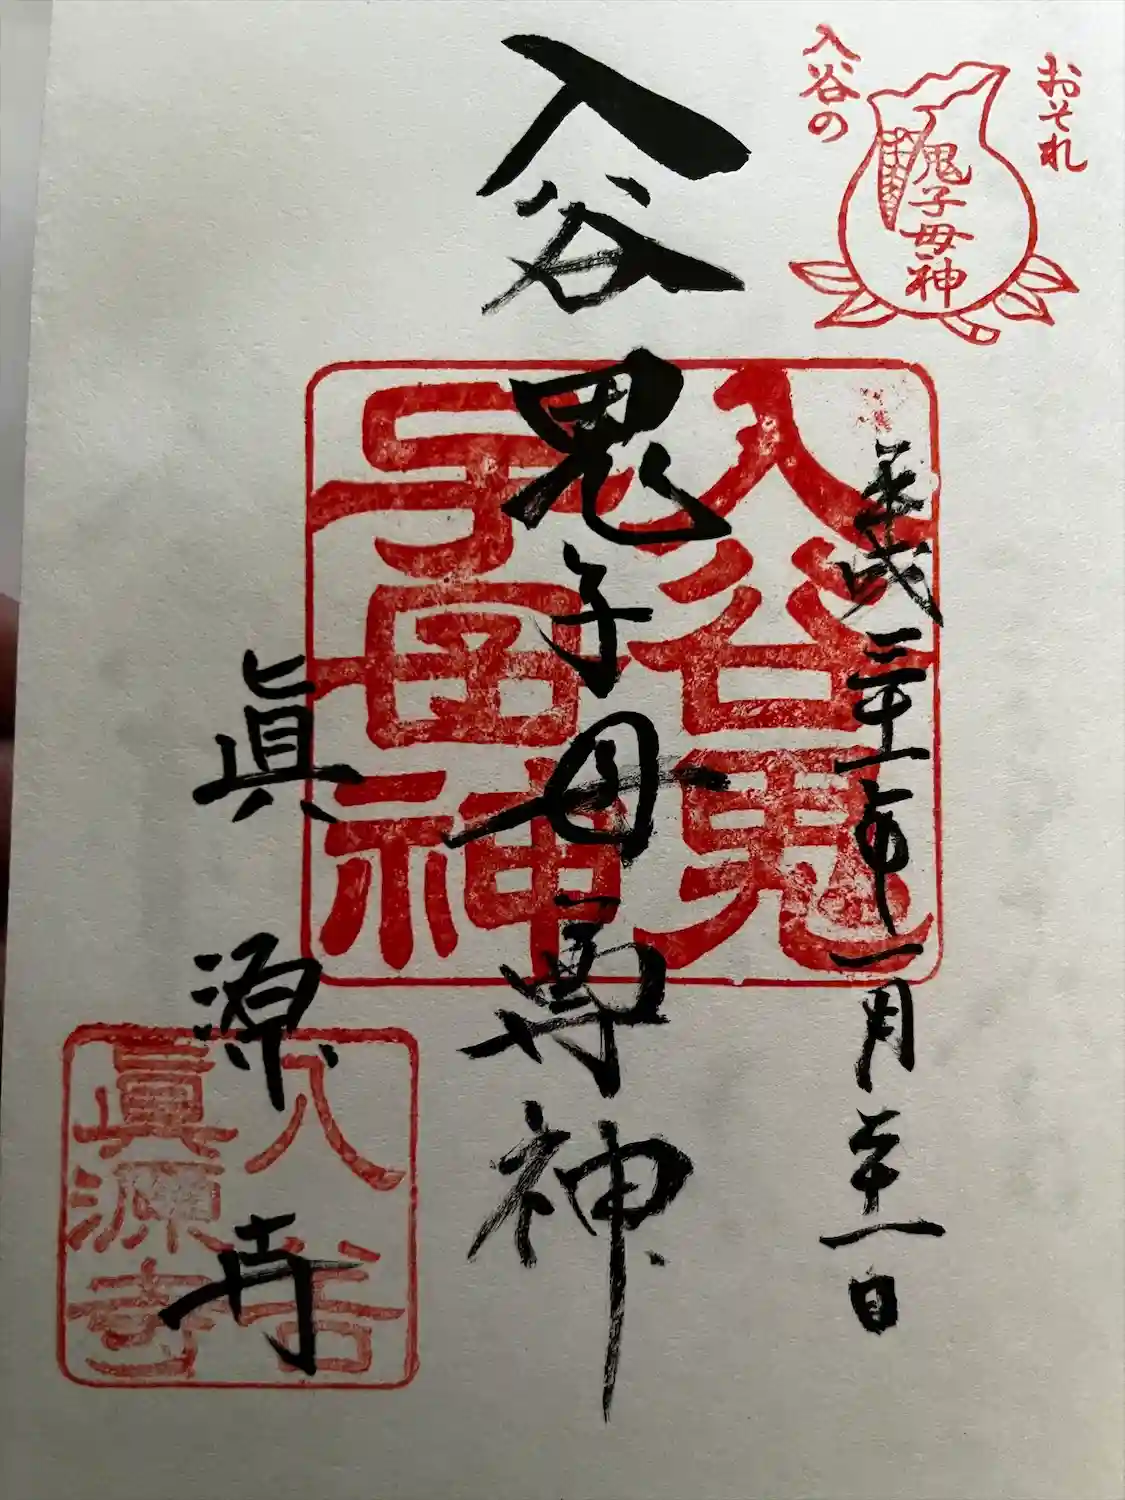 おそれ
入谷の
鬼子母神
平成三十一年一月二十一日
入谷鬼子母尊神
入谷鬼
子母神
眞源寺
入谷
眞源寺